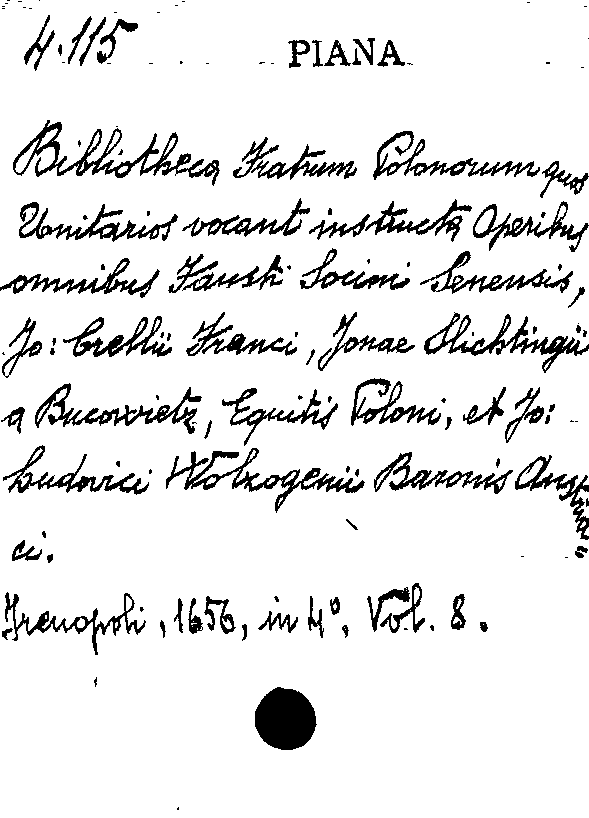 4.115 PIANA
Bibliotheca Fratrum Polonorum quos
Unitarios vocant instructa Operibus
omnibus Fausti Socini Senensis,
Jo: Crellii Franci, Jonae Slichtingii
a Bucowietz, Equitis Poloni, et Jo:
Ludovici Wolzogenii Baronis Austria=
ci.
Irenopoli, 1656, in 4º. Vol. 8.